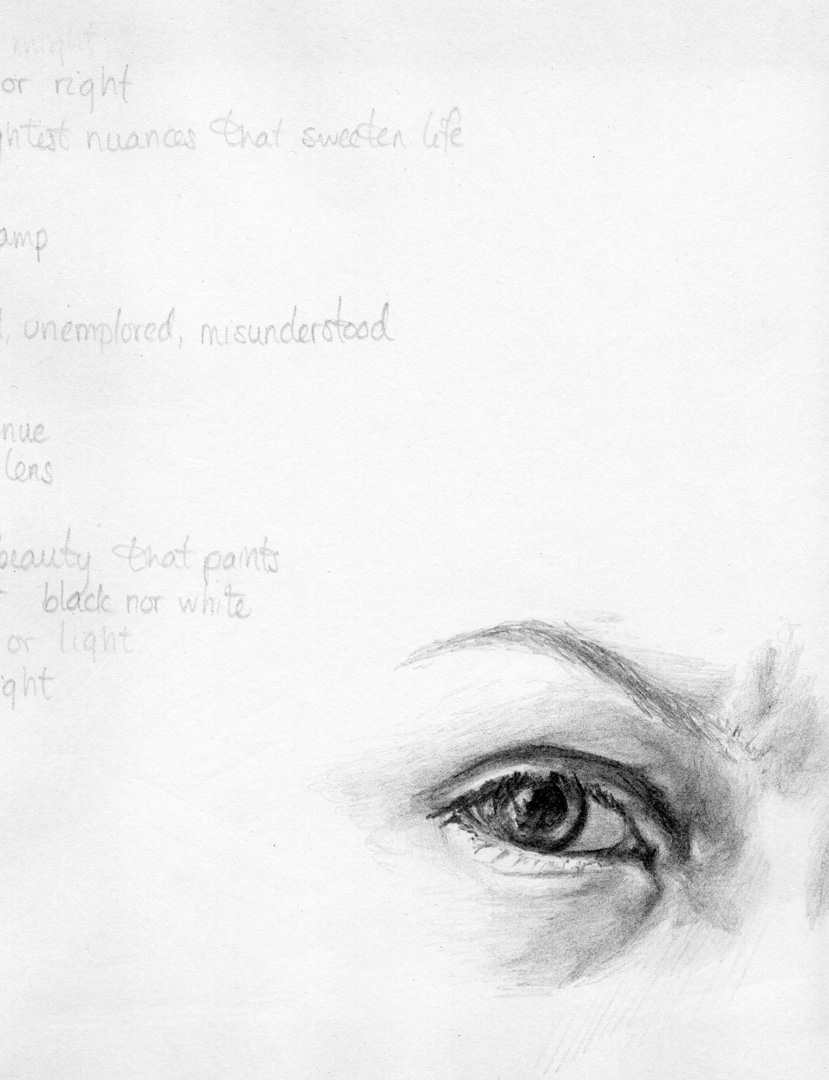 might
or right
ghtest nuances that sweeten life
amp
, unemplored, misunderstood
nue
lens
beauty that paints
black nor white
or light
ight